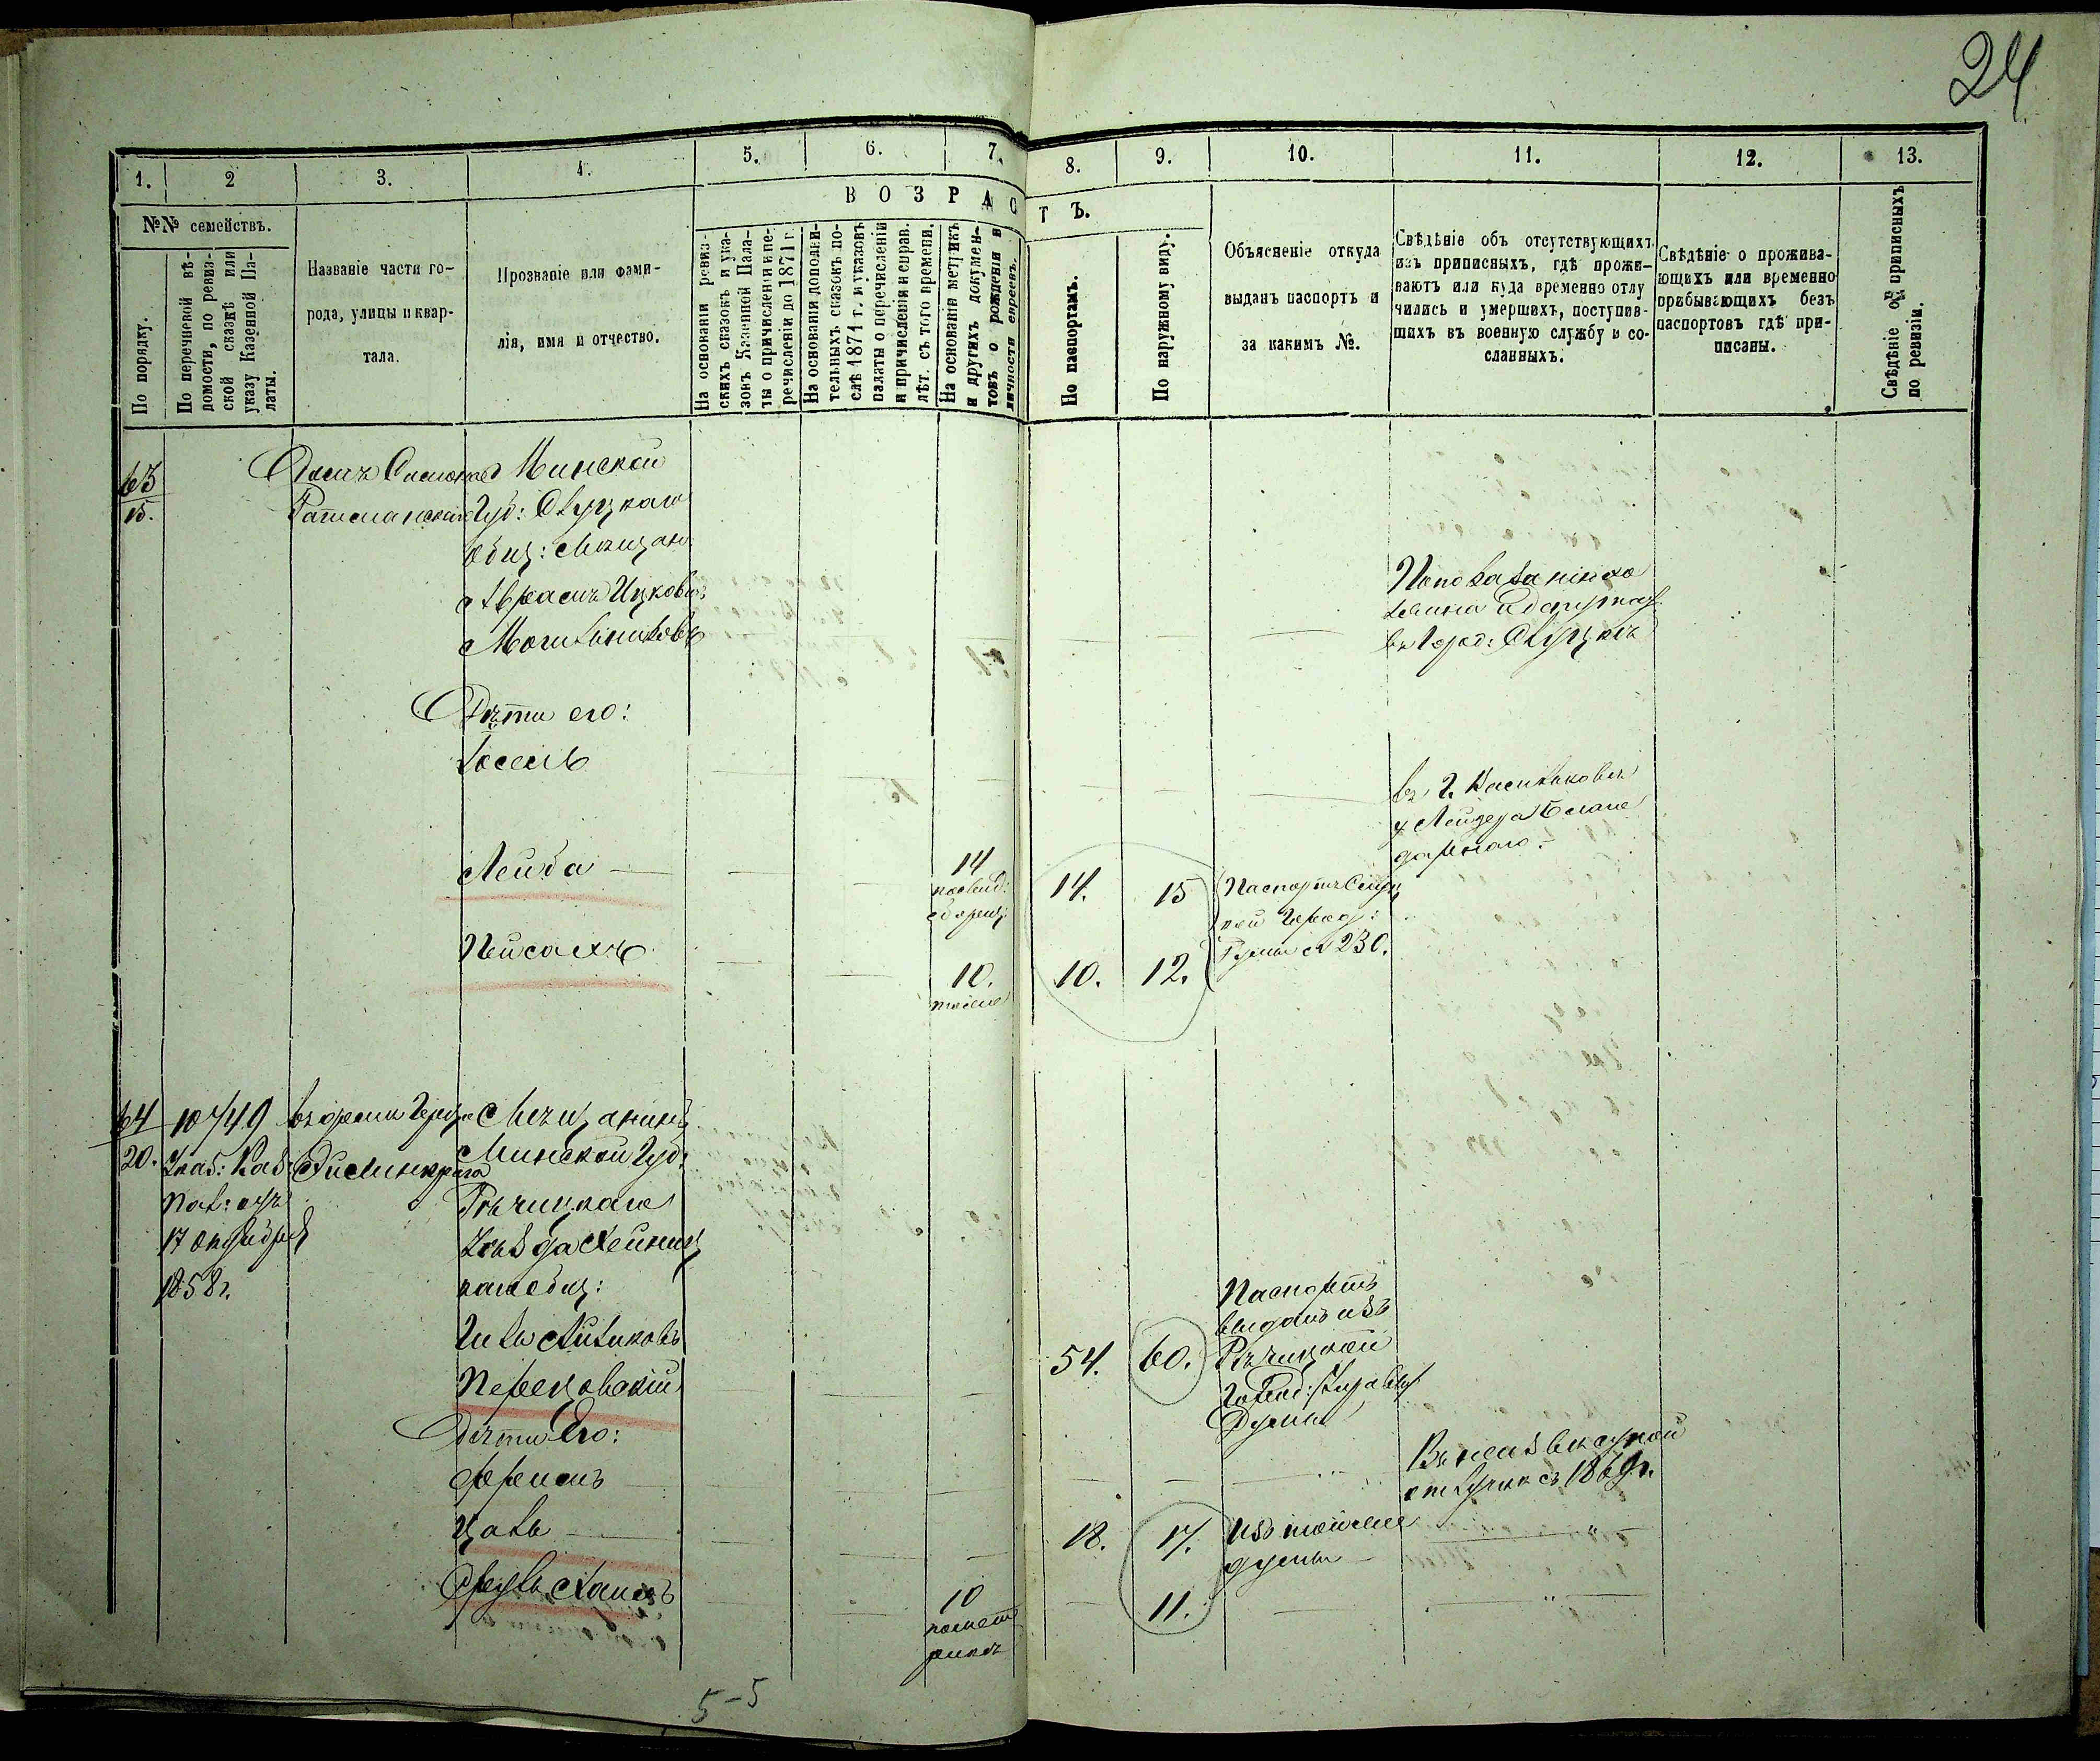 24
1. 2 3. 4. 5. 6. 7. 8. 9. 10. 11. 12. 13.
№№ семействъ.
По порядку.
По перечневой вѣ-
домости, по ревиз-
ской сказкѣ или
указу Казенной Па-
латы.
Названіе части го-
рода, улицы и квар-
тала.
Прозваніе или фами-
лія, имя и отчество.
ВОЗРАСТЪ.
На основаніи ревиз-
скихъ сказокъ и ука-
зовъ Казенной Пала-
ты о причисленіи и пе-
речисленіи до 1871 г.
На основаніи дополни-
тельныхъ сказокъ по-
слѣ 1871 г. и указовъ
палаты о перечисленіи
и причисленіи и справ.
лѣт. съ того времени.
На основаніи метрикъ
и другихъ докумен-
товъ о рожденіи и
личности евреевъ.
По паспортамъ.
По наружному виду.
Объясненіе откуда
выданъ паспортъ и
за какимъ №.
Свѣдѣніе объ отсутствующихъ
изъ приписныхъ, гдѣ прожи-
ваютъ или куда временно отлу
чились и умершихъ, поступив-
шихъ въ военную службу и со-
сланныхъ.
Свѣдѣніе о прожива-
ющихъ или временно
прибывающихъ безъ
паспортовъ гдѣ при-
писаны.
Свѣдѣніе о приписныхъ
по ревизіи.
63
15.
Домъ
Минской
Губ: Слуцкаго
общ: Мѣщан
Абрамъ Ицковъ
въ Город: Слуцкѣ
Дѣти его:
Іосель
въ г. Васильковѣ
Лейба
14
14. 15
Паспортъ Слуц
кой Город:
Думы № 230.
Пейсахъ
10.
тоже
10. 12.
64
20.
10749
Указ: Каз:
Пал: отъ
17 октября
1858 г.
въ домѣ
Мѣщанинъ
Минской Губ:
Рѣчицкаго
Уѣзда Хойниц
каго общ:
54. 60.
Паспортъ
выданъ изъ
Рѣчицкой
Город:
Думы
Дѣти Его:
Ефроимъ
съ 1869 г.
Цаль
18. 17.
Изъ тойже
думы
Сруль Хаимъ
10
по мет
рикѣ
11.
5-5